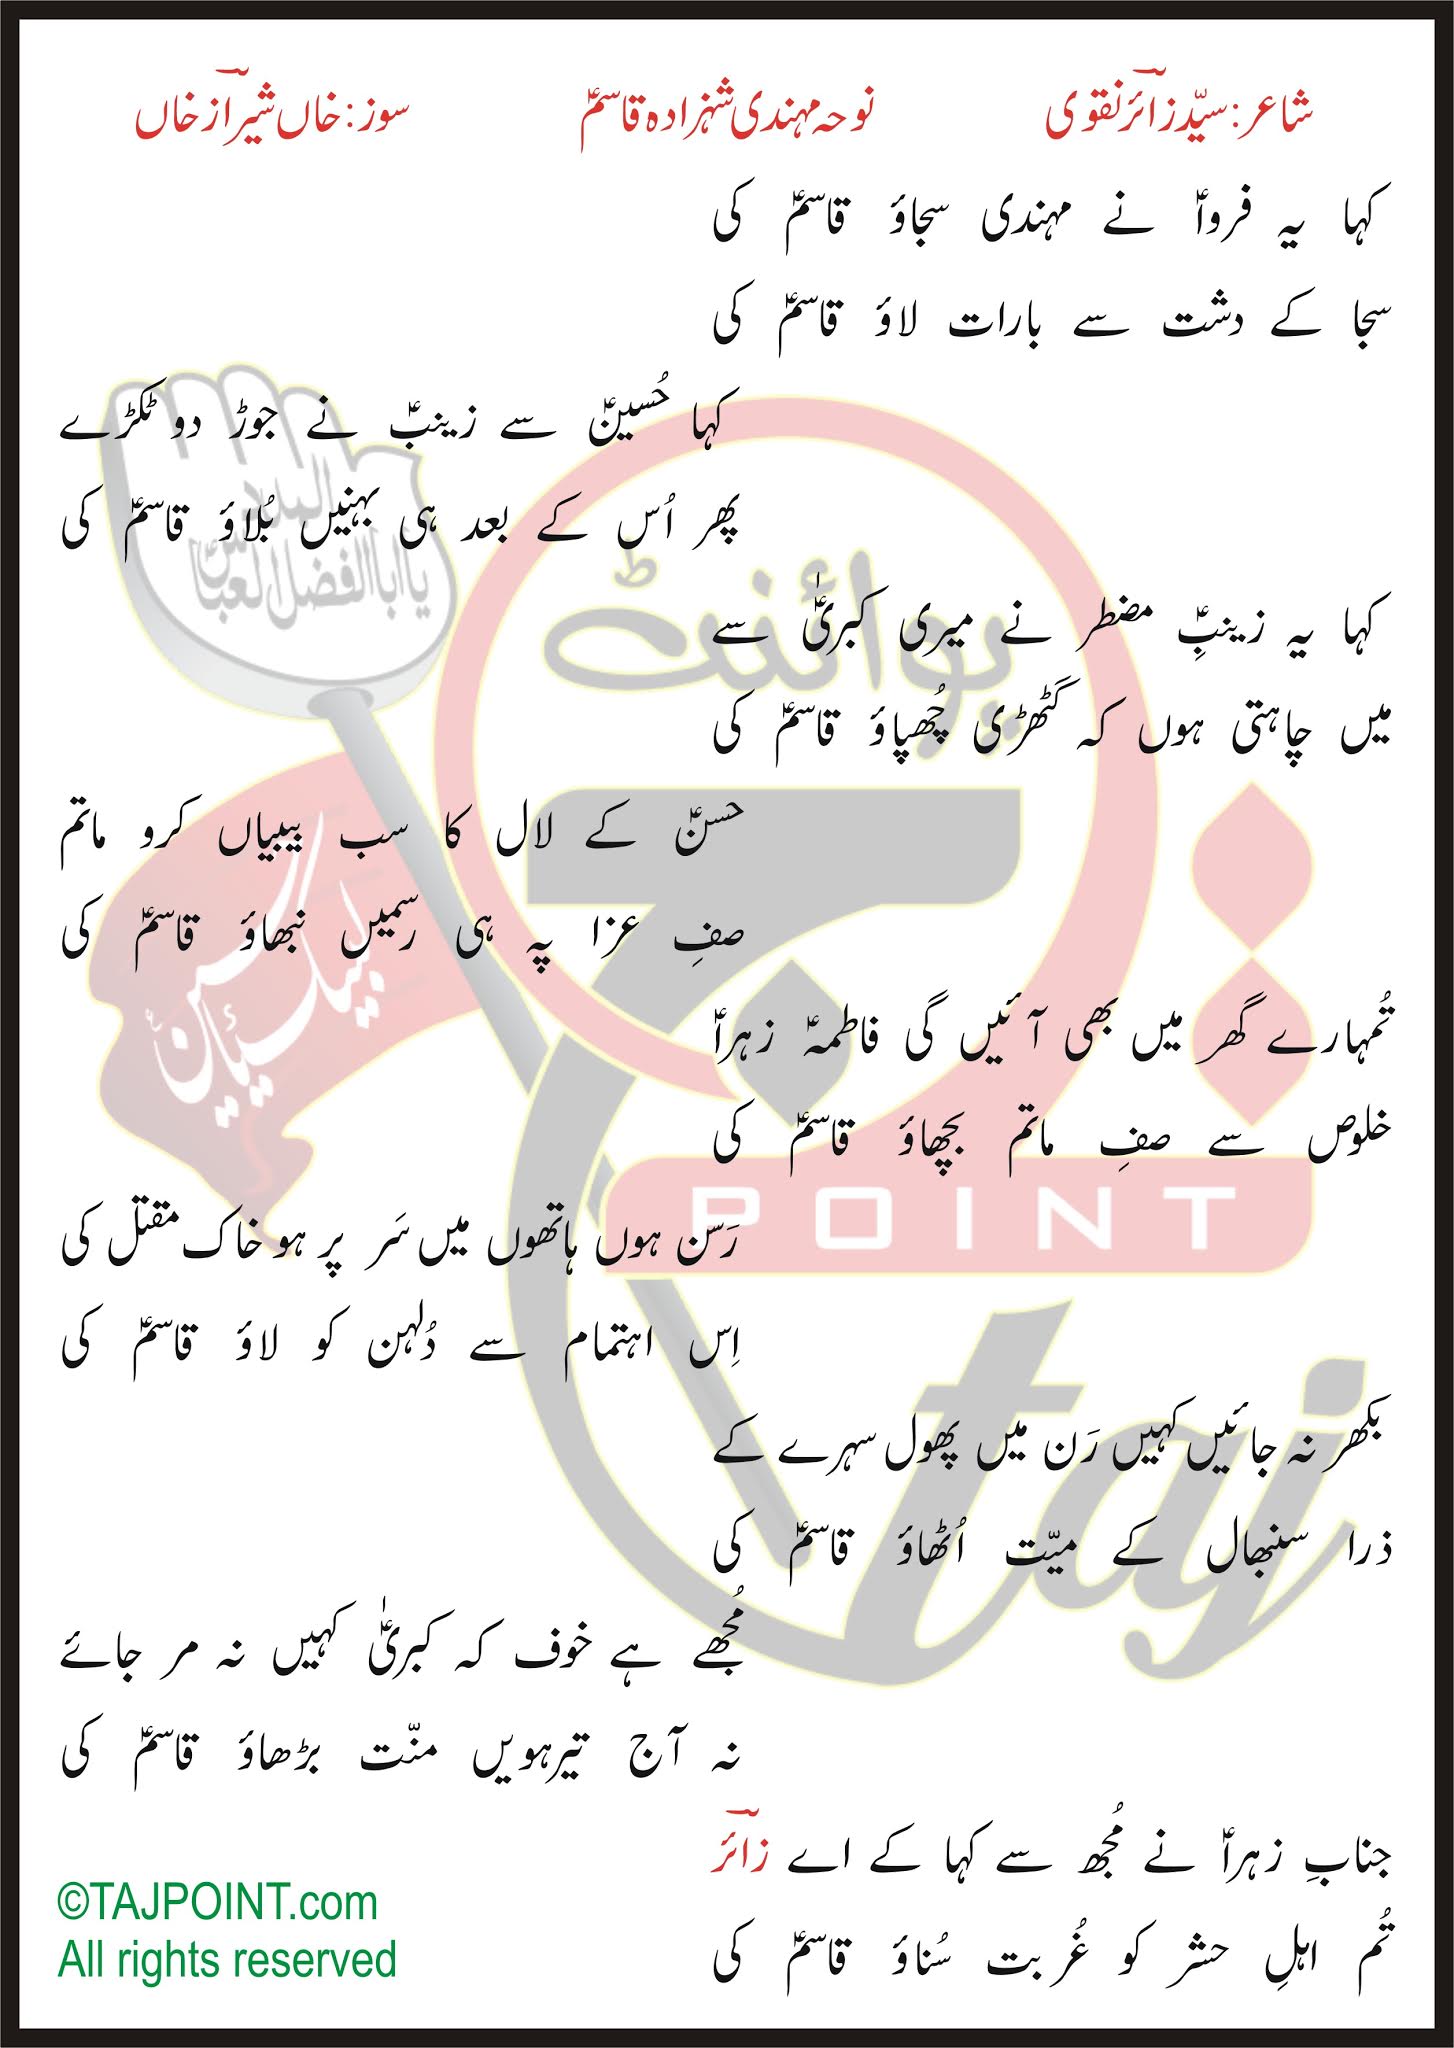 شاعر: سیّد زائرؔ نقوی
نوحہ مہندی شہزادہ قاسمؑ
سوز: خاں شیرازؔ خاں
کہا یہ فرواؑ نے مہندی سجاؤ قاسمؑ کی
سجا کے دشت سے بارات لاؤ قاسمؑ کی
کہا حُسینؑ سے زینبؑ نے جوڑ دو ٹکڑے
پھر اُس کے بعد ہی بہنیں بُلاؤ قاسمؑ کی
کہا یہ زینبِؑ مضطر نے میری کبریٰؑ سے
میں چاہتی ہوں کہ گَٹھڑی چُھپاؤ قاسمؑ کی
حسنؑ کے لال کا سب بیبیاں کرو ماتم
صفِ عزا پہ ہی رسمیں نبھاؤ قاسمؑ کی
تُمہارے گھر میں بھی آئیں گی فاطمہؑ زہراؑ
خلوص سے صفِ ماتم بچھاؤ قاسمؑ کی
رَسّن ہوں ہاتھوں میں سَر پر ہو خاک مقتل کی
اِس اہتمام سے دُلہن کو لاؤ قاسمؑ کی
بکھر نہ جائیں کہیں رَن میں پھول سہرے کے
ذرا سنبھال کے میّت اُٹھاؤ قاسمؑ کی
مُجھے ہے خوف کہ کبریٰؑ کہیں نہ مر جائے
نہ آج تیرہویں منّت بڑھاؤ قاسمؑ کی
جنابِ زہراؑ نے مُجھ سے کہا کے اے زائرؔ
تُم اہلِ حشر کو غُربت سُناؤ قاسمؑ کی
©TAJPOINT.com
All rights reserved
یا اباالفضل العباسؑ
لبیک یا حسینؑ
پوائنٹ
تاج
POINT
taj